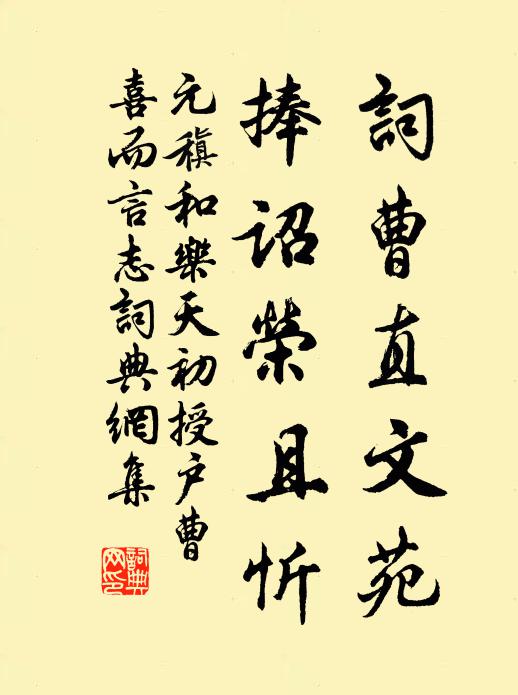 詞曹直文苑
捧詔榮且忻
元稹和樂天初授户曹
喜而言志詞典網集
詞典网印